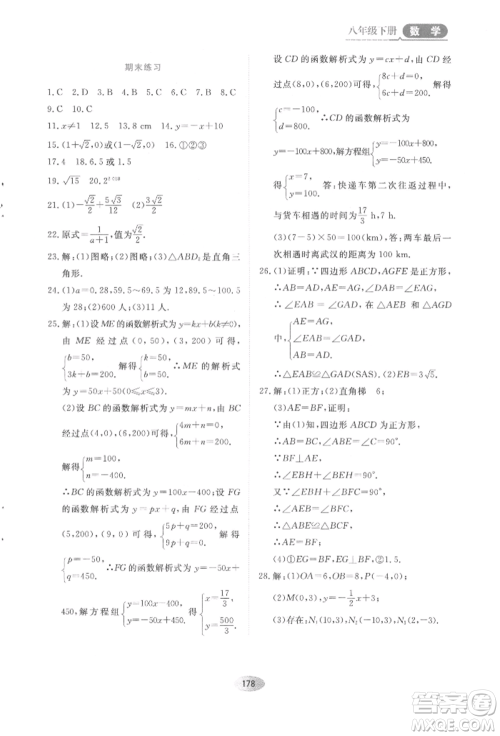 八年级下册 数学
期末练习
1.C 2.D 3.C 4.D 5.B 6.A 7.B 8.C
9.C 10.C
11.x≠1 12.5 13.24 14.y=-x+10
15.(1+√2,0)或(1-√2,0) 16.①②③
17.4 18.6,5或1.5
19.√15 20.2
21.(1)-√2/2+5√3/3 (2)√2/2
22.原式=1/(a+1),值为√2/2.
23.解:(1)图略;(2)图略;(3)△ABD₁是直角三
角形.
24.(1)a=0.28,图略,中位数落在12,89.5~
100.5;(2)8(600人);(3)11人.
25.解:(1)设ME的函数解析式为y=kx+b(k≠0),
由ME经过点(0,50),(3,200)可得:
{b=50, 3k+b=200. 解得{b=50, k=50. ∴ME的解析式
为y=50x+50(0≤x≤3)
(2)设BC的函数解析式为y=mx+n,由BC
经过点(4,0),(6,200)可得{4m+n=0, 6m+n=200. 解
得{m=100, n=-400.
∴BC的函数解析式为y=100x-400;设FG
的函数解析式为y=px+q,由FG经过点
(5,200),(9,0)可得{5p+q=200, 9p+q=0. 解得
{p=-50, q=450. ∴FG的函数解析式为y=-50x+
450,解方程组{y=100x-400, y=-50x+450. 得{x=17/3, y=500/3.
设CD的函数解析式为y=cx+d,由CD经
过点(8,0),(6,200)可得{8c+d=0, 6c+d=200. 解得
{c=-100, d=800. ∴CD的函数解析式为
y=-100x+800,解方程组{y=-100x+800, y=-50x+450.
得{x=7, y=100. 答:快递车第二次往返过程中,
与货车相遇的时间为17/3 h,7 h.
(3)(9-7)×50=100(km),答:两车最后一
次相遇时离武汉的距离为100 km.
26.(1)证明:∵四边形ABCD,AGFE是正方形
∴AB=AD,AE=AG,∠DAB=∠EAG,
∴∠EAB=∠GAD,在△AEB和△AGD
中,{AE=AG, ∠EAB=∠GAD, AB=AD.
∴△EAB≌△GAD(SAS). (2)EB=3√5.
27.解:(1)正方;(2)直角梯 6;
(3)AE=BF,证明:
∵由四边形ABCD为正方形可得:
∴AB=BC,∠ABC=∠C=90°,
∵BF⊥AE,∴∠EAB+∠EBH=90°,
∵∠EBH+∠BFC=90°,
∴∠EBH=∠BFC,∴△ABE≌△BCF.
∴AE=BF;
(4)①EG=BF,②1.5.
28.解:(1)OA=6,OB=8,P(4,0);
(2)
(3)存在:N₁(10,3),N₂(-10,3),N₃(10,-3).
178
答案圈
MXQE.COM